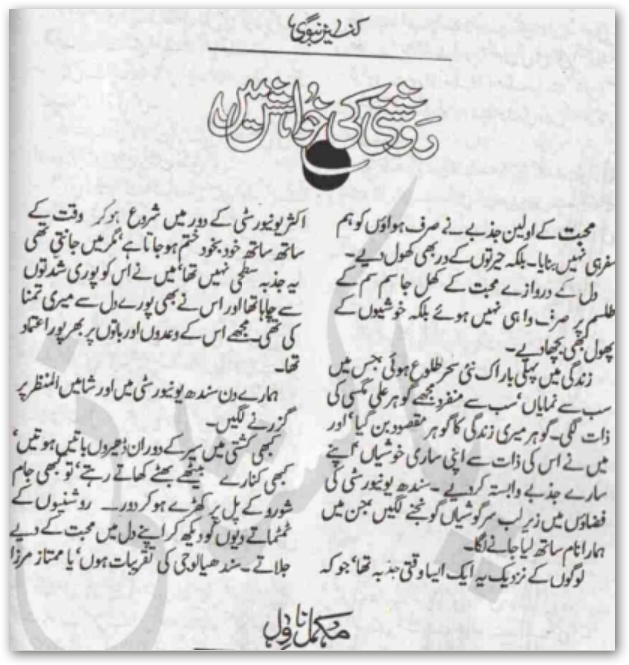 کنیز نبوی
روشنی کی خواہش میں
محبت کے اولین جذبے نے صرف ہواؤں کو ہم
سفر ہی نہیں بنایا۔ بلکہ حیرتوں کے در بھی کھول دیے۔
دل کے دروازے محبت کے کھل جا سم سم کے
طلسم کر پر صرف وا ہی نہیں ہوئے بلکہ خوشیوں کے
پھول بھی بچھا دیے۔
زندگی میں پہلی بار اک نئی سحر طلوع ہوئی جس میں
سب سے نمایاں‘ سب سے منفرد مجھے گوہر علی مگسی کی
ذات لگی۔ گوہر میری زندگی کا گوہر مقصود بن گیا‘ اور
میں نے اس کی ذات سے اپنی ساری خوشیاں‘ اپنے
سارے جذبے وابستہ کر دیے۔ سندھ یونیورسٹی کی
فضاؤں میں زیر لب سرگوشیاں گونجنے لگیں جن میں
ہمارا نام ساتھ لیا جانے لگا۔
لوگوں کے نزدیک یہ ایک ایسا وقتی جذبہ تھا‘ جو کہ
اکثر یونیورسٹی کے دور میں شروع ہو کر وقت کے
ساتھ ساتھ خود بخود ختم ہو جاتا ہے‘ مگر میں جانتی تھی
یہ جذبہ سطحی نہیں تھا‘ میں نے اس کو پوری شدتوں
سے چاہا تھا اور اس نے بھی پورے دل سے میری تمنا
کی تھی۔ مجھے اس کے وعدوں اور باتوں پر بھرپور اعتماد
تھا۔
ہمارے دن سندھ یونیورسٹی میں اور شامیں المنظر پر
گزرنے لگیں۔
کبھی کشتی میں سیر کے دوران ڈھیروں باتیں ہوتیں‘
کبھی کنارے بیٹھے بھٹے کھاتے رہتے‘ تو کبھی جام
شورو کے پل پر کھڑے ہو کر دور۔۔ روشنیوں کے
ٹمٹماتے دیوں کو دیکھ کر اپنے دل میں محبت کے دیے
جلاتے۔ سندھیالوجی کی تقریبات ہوں‘ یا ممتاز مرزا
مکمل ناول